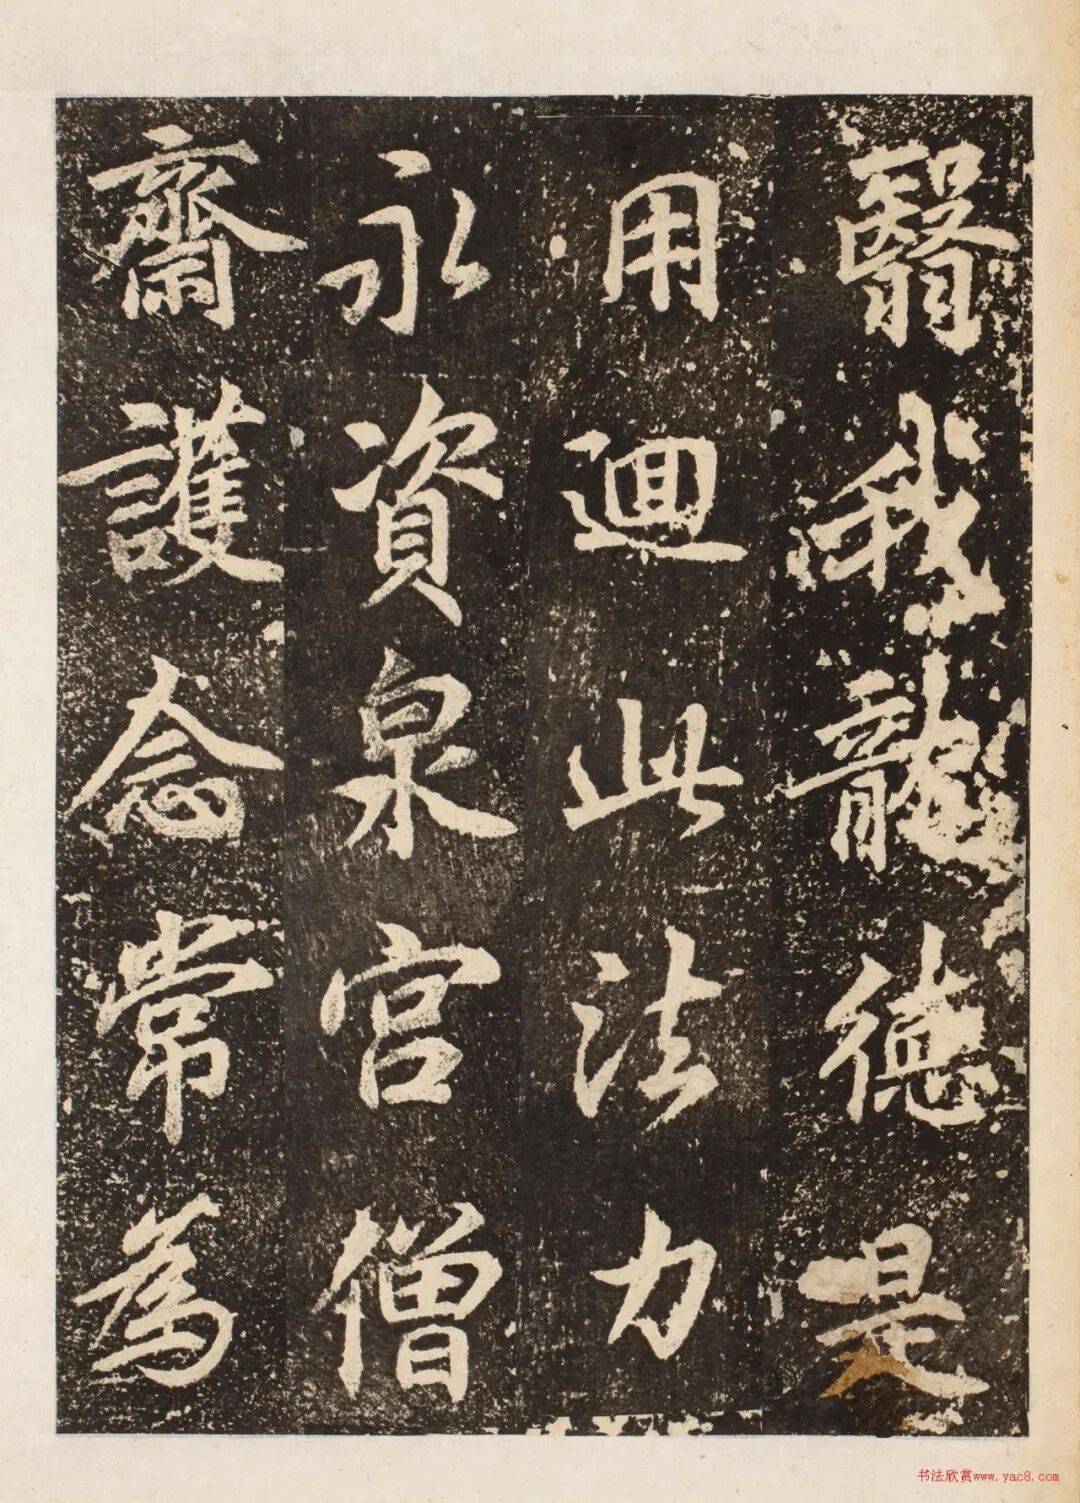 翳我龍德是
用迴此法力
永資泉官僧
齋護念常為
书法欣赏www.yac8.com